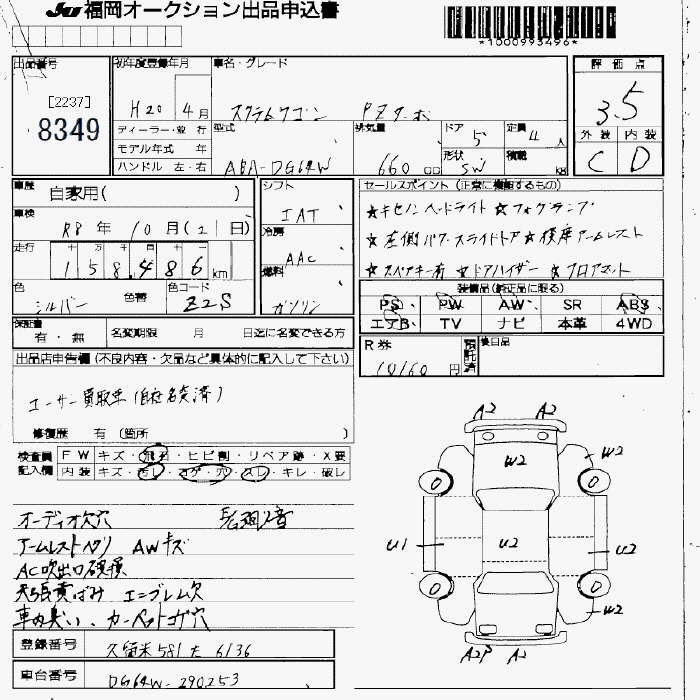 JU 福岡オークション出品申込書
*1000993496*
出品番号
[2237]
8349
初年度登録年月
H20 4月
ディーラー・並行
モデル年式 年
ハンドル 左・右
車名・グレード
スクラムワゴン PZターボ
型式
ABA-DG64W
排気量
660 CC
ドア
5
形状
SW
定員
4 人
積載
kg
評価点
3.5
外装 内装
C D
車歴
自家用( )
車検
R8 年 10 月(21 日)
走行
158,486 km
色
シルバー
色替
色コード
Z2S
シフト
IAT
冷房
AAC
燃料
ガソリン
セールスポイント (正常に機能するもの)
☆キセノンヘッドライト ☆フォグランプ
☆左側パワースライドドア ☆後席アームレスト
☆スペアキー有 ☆ドアバイザー ☆フロアマット
装備品(純正品に限る)
PS PW AW SR ABS
エアB TV ナビ 本革 4WD
保証書
有・無
名変期限 月 日迄に名変できる方
R券
10160 円
預託済
後日品
出品店申告欄 (不良内容・欠品など具体的に記入して下さい)
ユーザー買取車(自社名変済)
修復歴 有 (箇所 )
検査員記入欄
FW キズ・飛石・ヒビ割・リペア跡・X要
内装 キズ・汚れ・コゲ・穴・スレ・キレ・破レ
オーディオ欠 穴
アームレストヘタリ AWキズ
AC吹出口破損
天張黄ばみ エンブレム欠
車内臭い、カーペットコゲ穴
登録番号
久留米 581 た 6136
車台番号
DG64W-290253
A2 A2
W2 W2
U1 U2 U2
W2
A2P A2